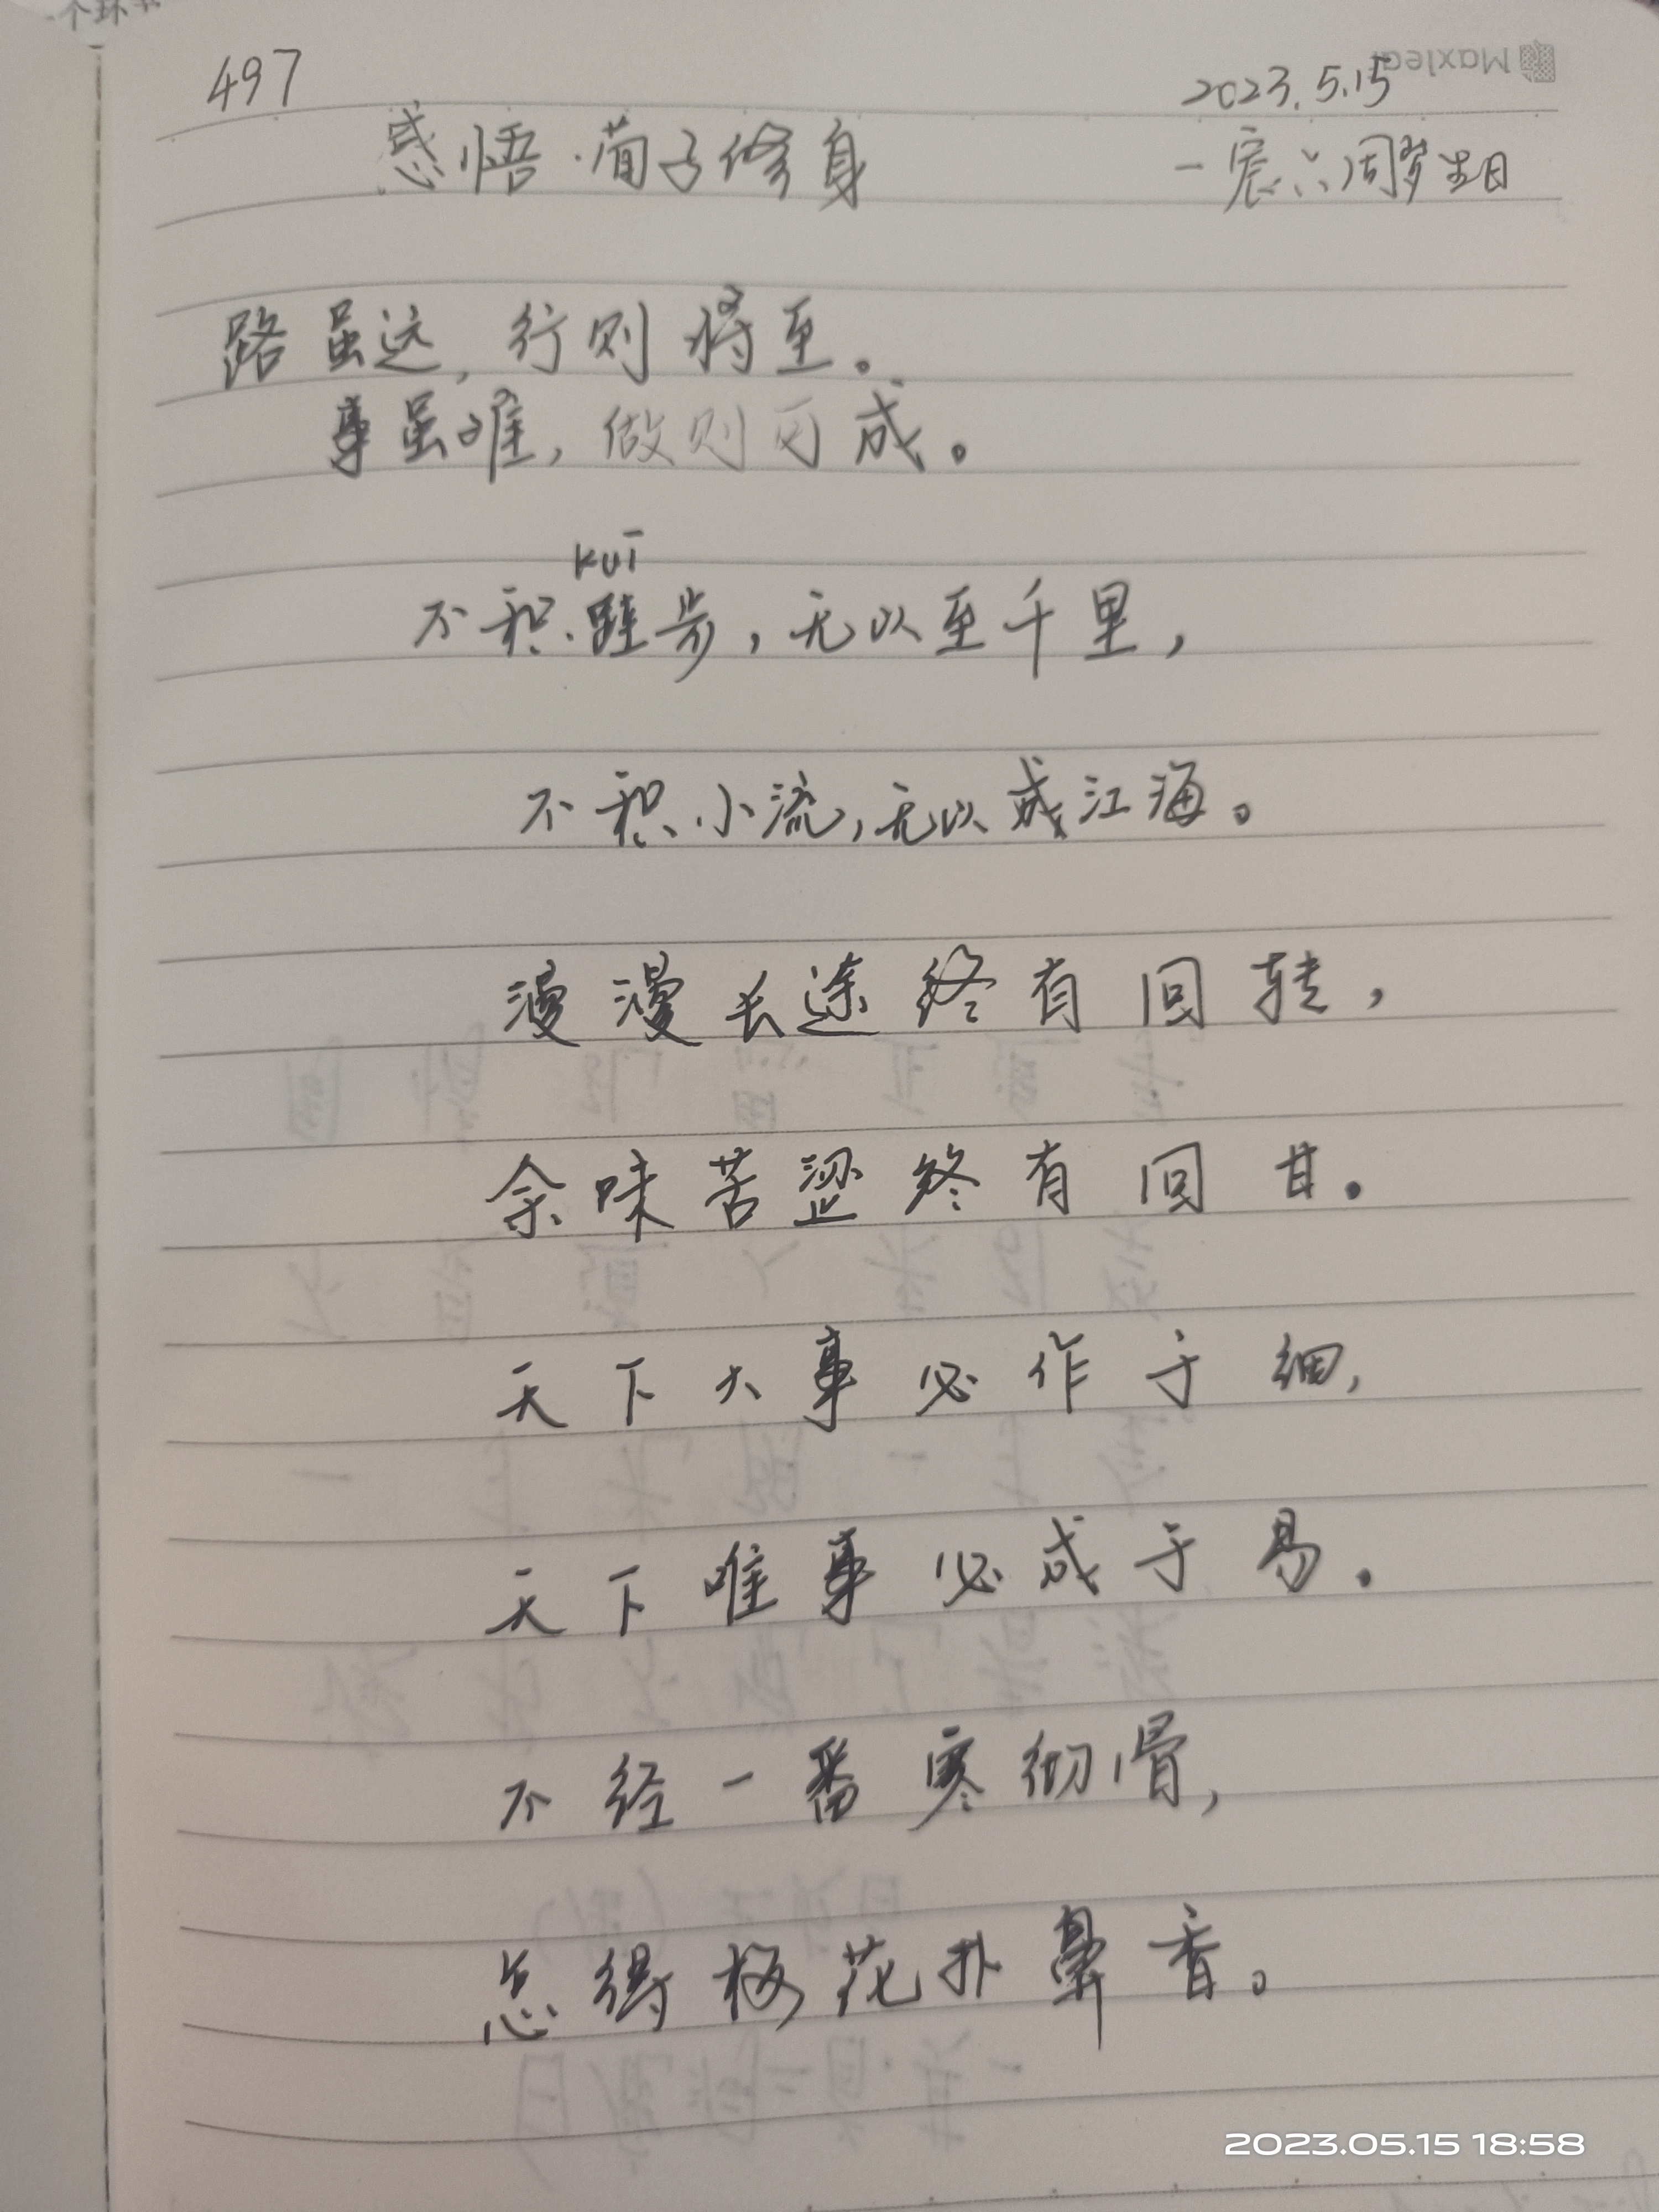 497
2023.5.15
Maxlea
感悟·荀子修身
一宸六周岁生日
路虽远，行则将至。
事虽难，做则可成。
kuī
不积跬步，无以至千里，
不积小流，无以成江海。
漫漫长途终有回转，
余味苦涩终有回甘。
天下大事必作于细，
天下唯事必成于易.
不经一番寒彻骨，
怎得梅花扑鼻香。
2023.05.15 18:58